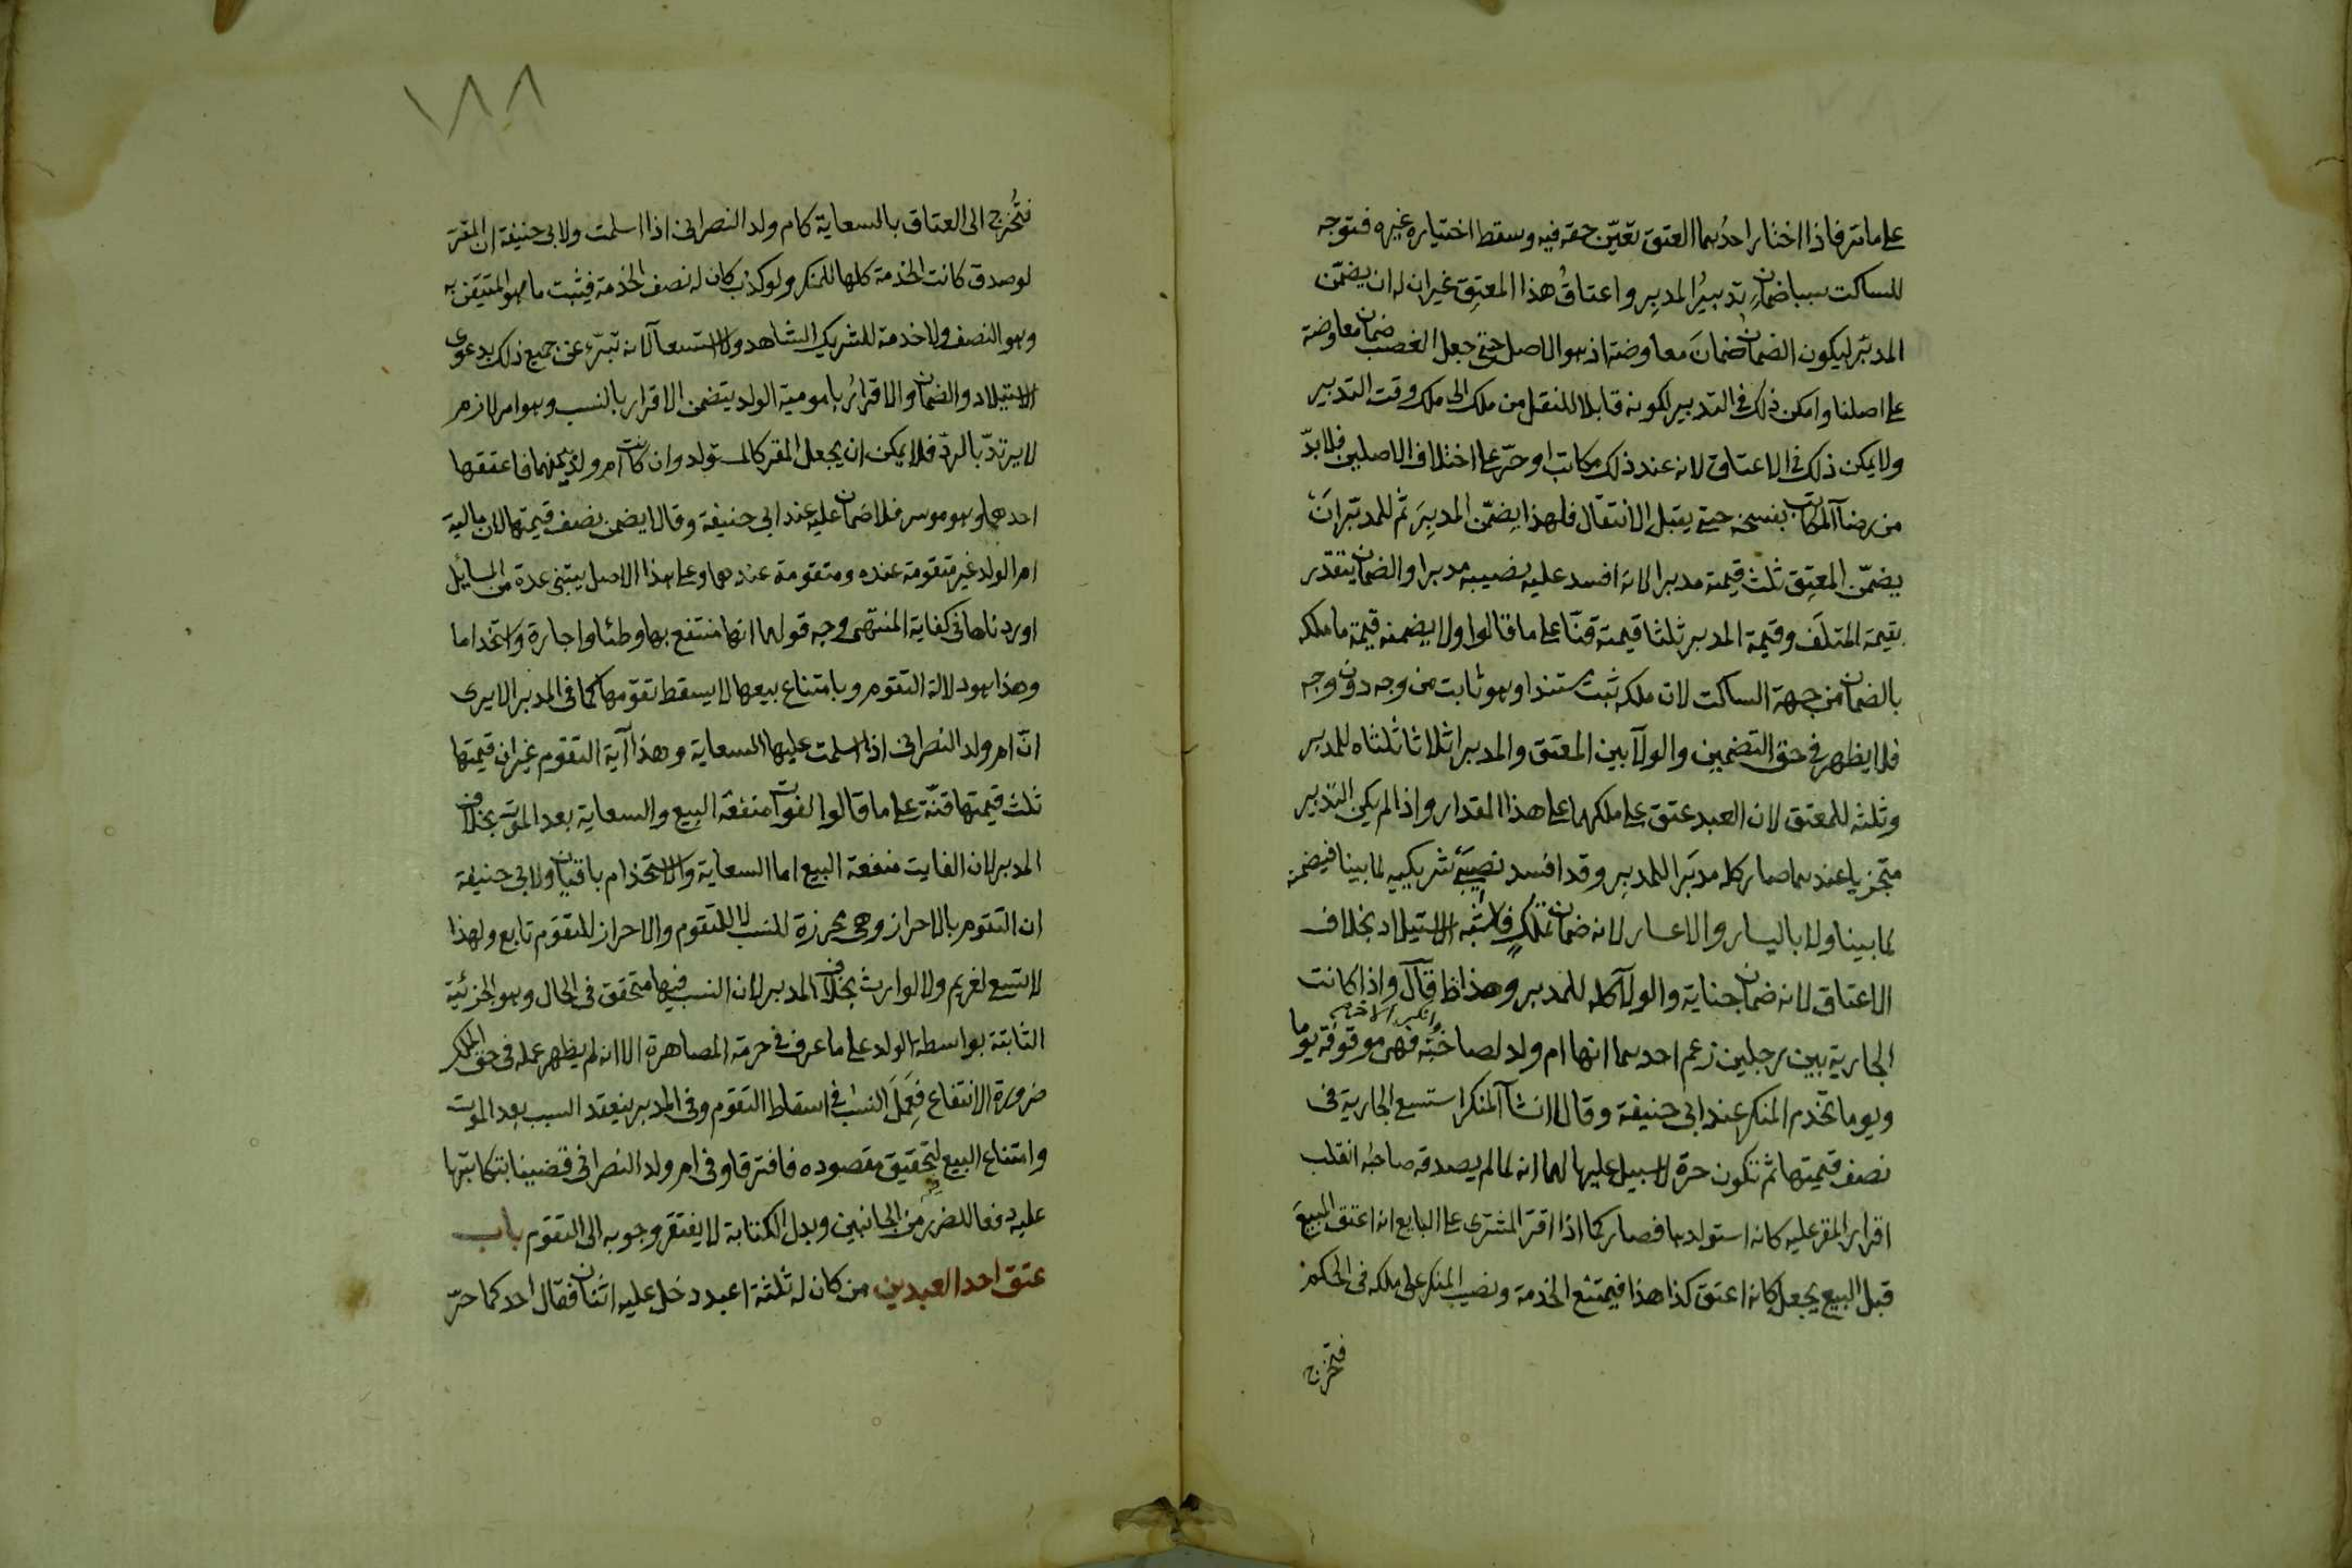 على ما مر فاذا اختار احدهما العتق تعيّن حقه فيه وسقط اختياره غيره فتوجه
للساكت سببا ضمان تدبيرُ المدبِر واعتاقُ هذا المعتِق غير ان له ان يضمّن
المدبّر ليكون الضمان ضمانَ معاوضة اذ هو الاصل حتى جعل الغصب ضمان معاوضة
على اصلنا وامكن ذلك فى التدبير لكونه قابلا للنقل من ملك الى ملك وقت التدبير
ولا يمكن ذلك فى الاعتاق لانه عند ذلك مكاتب او حرّ على اختلاف الاصلين فلا بدّ
من رضآ المكاتب بفسخه حتى يقبل الانتقال فلهذا يضمّن المدبِرَ ثم للمدبّر انَ
يضمّن المعتِق ثلث قيمته مدبرا لانه افسد عليه نصيبه مدبرا والضمان يتقدر
بقيمة المتلَف وقيمة المدبر ثلثا قيمته قنّا على ما قالوا ولا يضمنه قيمة ما ملكه
بالضمان من جهة الساكت لان ملكه ثبت مستندا وهو ثابت من وجه دون وجه
فلا يظهر فى حق التضمين والولآ بين المعتق والمدبر اثلاثا ثلثاه للمدبر
وثلثه للمعتق لان العبد عتق على ملكهما على هذا المقدار واذا لم يكن التدبير
متجزيا عندهما صار كله مدبَرا للمدبِر وقد افسد نصيبَ شريكيه لما بينا فيضمنه
لما بينا ولا باليسار والاعسار لانه ضمان تملّكٍ فلاشبه الاستيلاد بخلاف
الاعتاق لانه ضمان جناية والولآ كله للمدبر وهذا ظ قال واذا كانت
وانكر الاخر
الجارية بين رجلين زعم احدهما انها ام ولد لصاحبه فهى موقوفة يوما
ويوما تخدم المنكر عند ابى حنيفة وقالا ان شآ المنكر استسع الجارية فى
نصف قيمتها ثم تكون حرة لا سبيل عليها لهما انه لما لم يصدقه صاحبُه انقلب
اقرار المقر عليه كانه استولدها فصار كما اذا اقرّ المشترى على البايع انه اعتق المبيعَ
قبل البيع يجعل كانه اعتق كذا هذا فيمتنع الخدمة ونصيب المنكر على ملكه فى الحكم
فتخرج
١٨٨
فتُخرج الى العتاق بالسعاية كام ولد النصرانى اذا اسلمت ولابى حنيفة ان المقرّ
لو صدق كانت الخدمة كلها للمنكر ولو كذب كان له نصف الخدمة فيثبت ما هو المتيقن به
وهو النصف ولا خدمة للشريك الشاهد ولا استسعآ لانه تبرّء عن جميع ذلك بدعوى
الاستيلاد والضمان والاقرارُ باموميّة الولد يتضمن الاقرار بالنسب وهو امر لازم
لا يرتدّ بالردّ فلا يمكن ان يجعل المقر كالمستولد وان كانت ام ولد بينهما فاعتقها
احدهما وهو موسر فلا ضمان عليه عند ابى حنيفة وقالا يضمن نصف قيمتها لان مالية
ام الولد غير متقومة عنده ومتقومة عندهما وعلى هذا الاصل يبتنى عدة من المسايل
اوردناها فى كفاية المنتهى وجه قولهما انها منتفع بها وطئا واجارة واستخداما
وهذا هو دلالة التقوم وبامتناع بيعها لا يسقط تقومها كما فى المدبر الا يرى
انّ ام ولد النصرانى اذا اسلمت عليها السعاية وهذا آية التقوم غير ان قيمتها
ثلث قيمتها قنّة على ما قالوا لفوات منفعة البيع والسعاية بعد الموت بخلاف
المدبر لان الفايت منفعة البيع اما السعاية والاستخدام باقيان ولابى حنيفة
ان التقوم بالاحراز وهى محرزة للنسب لا للتقوم والاحراز للتقوم تابع ولهذا
لا تسع لغريم ولا لوارث بخلاف المدبر لان النسب فيها متحقق فى الحال وهو الجزئية
الثابتة بواسطة الولد على ما عرف فى حرمة المصاهرة الا انه لم يظهر عمله فى حق الملك
ضرورة الانتفاع فعَمِلَ النسب فى اسقاط التقوم وفى المدبر ينعقد السبب بعد الموت
وامتناع البيع لتحقيق مقصوده فافترقا وفى ام ولد النصرانى قضينا بتكاتبها
عليه دفعا للضرر من الجانبين وبدل الكتابة لا يفتقر وجوبه الى التقوم باب
عتق احد العبدين من كان له ثلثة اعبد دخل عليه اثنان فقال احدكما حرّ